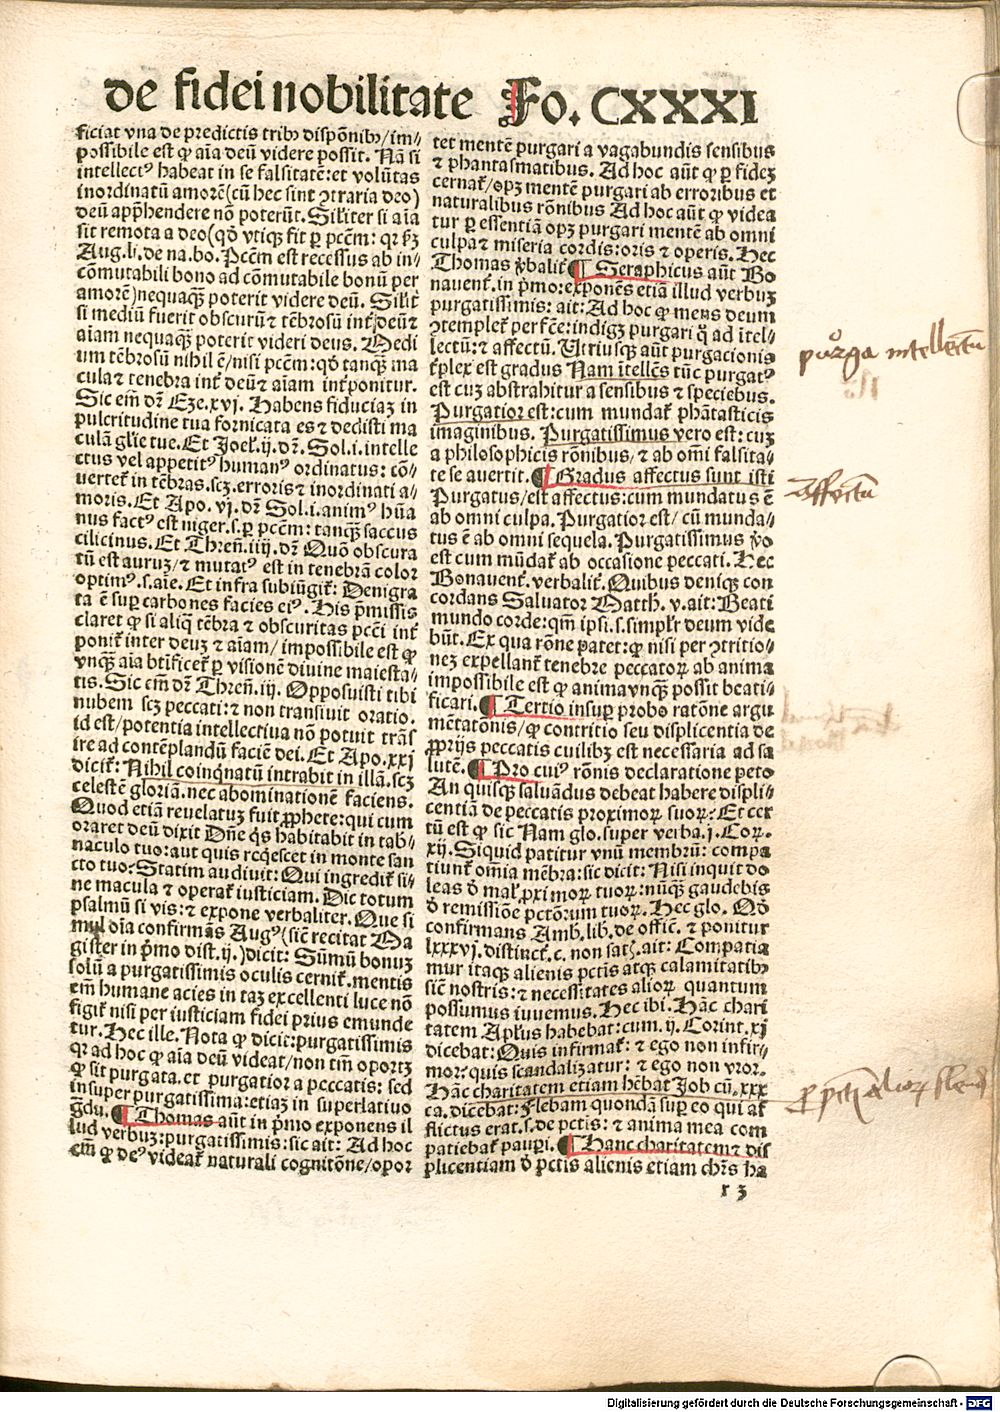 de fidei nobilitate Fo. CXXXI
ficiat vna de predictis tribꝰ dispōnibꝰ/im-
possibile est ꝙ aīa deū videre possit. Nā si
intellectꝰ habeat in se falsitatē: et volūtas
inordinatū amorē(cū hec sint ꝯtraria deo)
deū app̄hendere nō poterūt. Silīter si aīa
sit remota a deo(qđ vtiqꝫ fit ꝑ pctm̄: qꝛ ẜm
Aug. li. de na. bo. Pctm̄ est recessus ab in-
cōmutabili bono ad cōmutabile bonū per
amorē)nequaqꝫ poterit videre deū. Silīt̄
si mediū fuerit obscurū ⁊ tēbrosū int̄ deū ⁊
aīam nequaqꝫ poterit videri deus. Medi
um tēbrosū nihil ē/nisi pctm̄: qđ tanqꝫ ma
cula ⁊ tenebra int̄ deū ⁊ aīam int̄ponitur.
Sic eīm dꝛ̄ Eze. xvj. Habens fiduciaꝫ in
pulcritudine tua fornicata es ⁊ dedisti ma
culā glīe tue. Et Joel. ij. dꝛ̄. Sol .i. intelle
ctus vel appetitꝰ humanꝰ ordinatus: cō-
uertet̄ in tēbras. scꝫ. erroris ⁊ inordinati a-
moris. Et Apo. vj. dꝛ̄ Sol .i. animꝰ hūa
nus factꝰ est niger .s. ꝑ pctm̄: tanqꝫ saccus
cilicinus. Et Thren̄. iiij. dꝛ̄ Quō obscura
tū est auruꝫ/⁊ mutatꝰ est in tenebrā color
optimꝰ .s. aīe. Et infra subiūgit̄: Denigra
ta ē suꝑ carbones facies eiꝰ. His p̄missis
claret ꝙ si aliq̄ tēbra ⁊ obscuritas pctī int̄
ponit̄ inter deuꝫ ⁊ aīam/ impossibile est ꝙ
vnqꝫ aīa btīficet̄ ꝑ visionē diuine maiesta-
tis. Sic eīm dꝛ̄ Thren̄. iij. Opposuisti tibi
nubem scꝫ peccati: ⁊ non transiuit oratio.
id est/potentia intellectiua nō potuit trās
ire ad contēplandū faciē dei. Et Apo. xxj
dicit̄: Nihil coinqnatū intrabit in illā. scꝫ
celestē gloriā. nec abominationē faciens.
Quod etiā reuelatuꝫ fuit ꝓphete: qui cum
oraret deū dixit Dn̄e q̄s habitabit in tab-
naculo tuo: aut quis reqescet in monte san
cto tuo: Statim audiuit: Qui ingredit̄ si-
ne macula ⁊ operat̄ iusticiam. Dic totum
psalmū si vis: ⁊ expone verbaliter. Que si
mul oīa confirmās Augꝰ (sic̄ recitat Ma
gister in p̄mo dist. ij.)dicit: Sūmū bonuꝫ
solū a purgatissimis oculis cernit̄. mentis
em̄ humane acies in taꝫ excellenti luce nō
figit̄ nisi per iusticiam fidei prius emunde
tur. Hec ille. Nota ꝙ dicit: purgatissimis
qꝛ ad hoc ꝙ aīa deū videat/non tm̄ oportꝫ
ꝙ sit purgata. et purgatior a peccatis: sed
insuper purgatissima: etiaꝫ in superlatiuo
gͣdu. ¶ Thomas aūt in p̄mo exponens il
lud verbuꝫ: purgatissimis: sic ait: Ad hoc
em̄ ꝙ deꝰ videat̄ naturali cognitōne/opor
tet mentē purgari a vagabundis sensibus
⁊ phantasmatibus. Ad hoc aūt ꝙ ꝑ fideꝫ
cernat̄/opꝫ mentē purgari ab erroribus et
naturalibus rōnibus Ad hoc aūt ꝙ videa
tur ꝑ essentiā opꝫ purgari mentē ab omni
culpa ⁊ miseria cordis: oris ⁊ operis. Hec
Thomas v̄balit̄ ¶ Seraphicus aūt Bo
nauent̄. in p̄mo: exponēs etiā illud verbuꝫ
purgatissimis: ait: Ad hoc ꝙ mens deum
ꝯtemplet̄ perfēe: indigꝫ purgari q̊ ad itel-
lectū: ⁊ affectū. Utriusqꝫ aūt purgacionis
t̄plex est gradus Nam itellēs tūc purgatꝰ
est cuꝫ abstrahitur a sensibus ⁊ speciebus.
Purgatior est: cum mundat̄ phātasticis
imaginibus. Purgatissimus vero est: cuꝫ
a philosophicis rōnibus, ⁊ ab om̄i falsita-
te se auertit. ¶ Gradus affectus sunt isti
Purgatus/est affectus: cum mundatus ē
ab omni culpa. Purgatior est/ cū munda-
tus ē ab omni sequela. Purgatissimus v̊o
est cum mūdat̄ ab occasione peccati. Hec
Bonauent̄. verbalit̄. Quibus deniqꝫ con
cordans Saluator Matth. v. ait: Beati
mundo corde: qm̄ ipsi .s. simplr̄ deum vide
būt. Ex qua rōne patet: ꝙ nisi per ꝯtritio-
neꝫ expellant̄ tenebre peccatoꝝ ab anima
impossibile est ꝙ anima vnqꝫ possit beati-
ficari. ¶ Tertio insuꝑ probo ratōne argu
mētatōnis/ꝙ contritio seu displicentia de
ꝓprijs peccatis cuilibꝫ est necessaria ad sa
lutē. ¶ Pro cuiꝰ rōnis declaratione peto
An quisqꝫ saluādus debeat habere displi-
centiā de peccatis proximoꝝ suoꝝ: Et ccr
tū est ꝙ sic Nam glo. super verba. j. Coꝝ.
xij. Siquid patitur vnū membrū: compa
tiunt̄ omīa mēbra: sic dicit: Nisi inquit do
leas ō mal̄ ꝓximoꝝ tuoꝝ: nūqꝫ gaudebis
ō remissiōe pctōrum tuoꝝ. Hec glo. Qđ
confirmans Amb. lib. de offic̄. ⁊ ponitur
lxxxvj. distinct̄. c. non satꝫ. ait: Compatia
mur itaqꝫ alienis pctis atqꝫ calamitatibꝰ
sic̄ nostris: ⁊ necessitates alioꝝ quantum
possumus iuuemus. Hec ibi. Hāc chari
tatem Apl̄us habebat: cum. ij. Corint. xj
dicebat: Quis infirmat̄: ⁊ ego non infir-
mor: quis scandalizatur: ⁊ ego non vror.
Hāc charitatem etiam hēbat Job cū. xxx
ca. dicebat: Flebam quondā suꝑ eo qui af
flictus erat .s. de pctis: ⁊ anima mea com
patiebat̄ pauꝑi. ¶ Hanc charitatem ⁊ dis
plicentiam ō pctis alienis etiam chr̄s ha
r 3
purga intellectū
Affectū